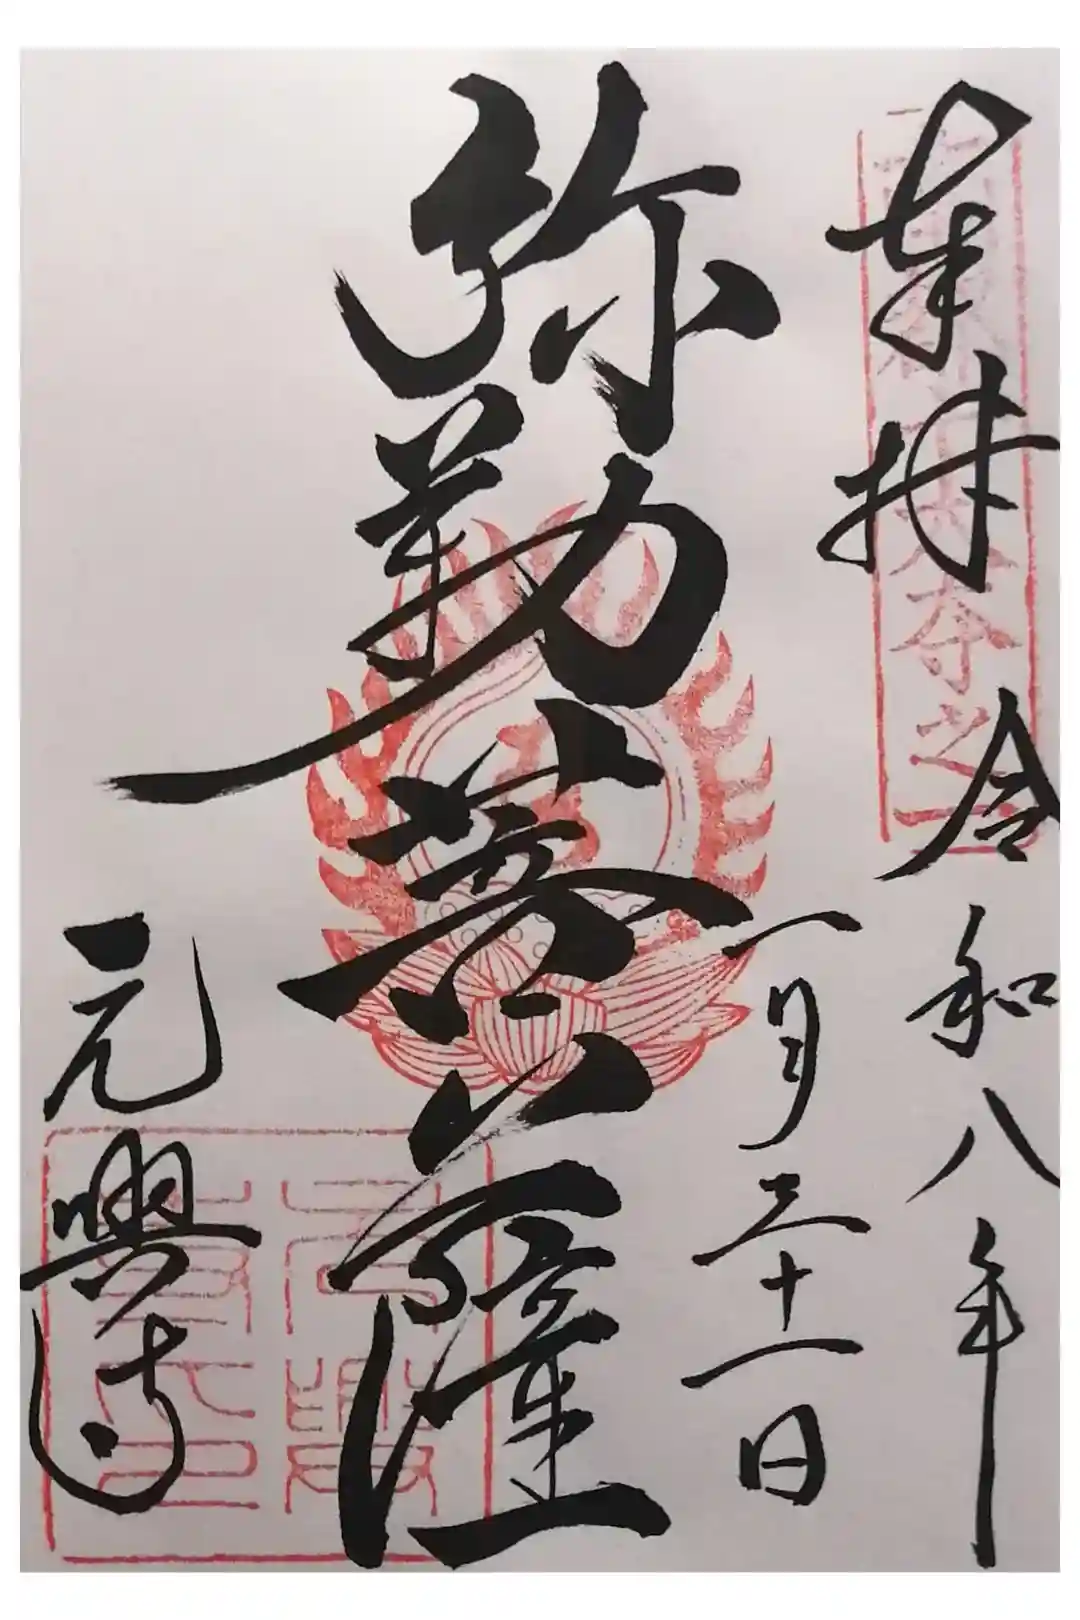 奉拝
令和八年
一月三十一日
弥勒菩薩
元興寺
元興寺之印